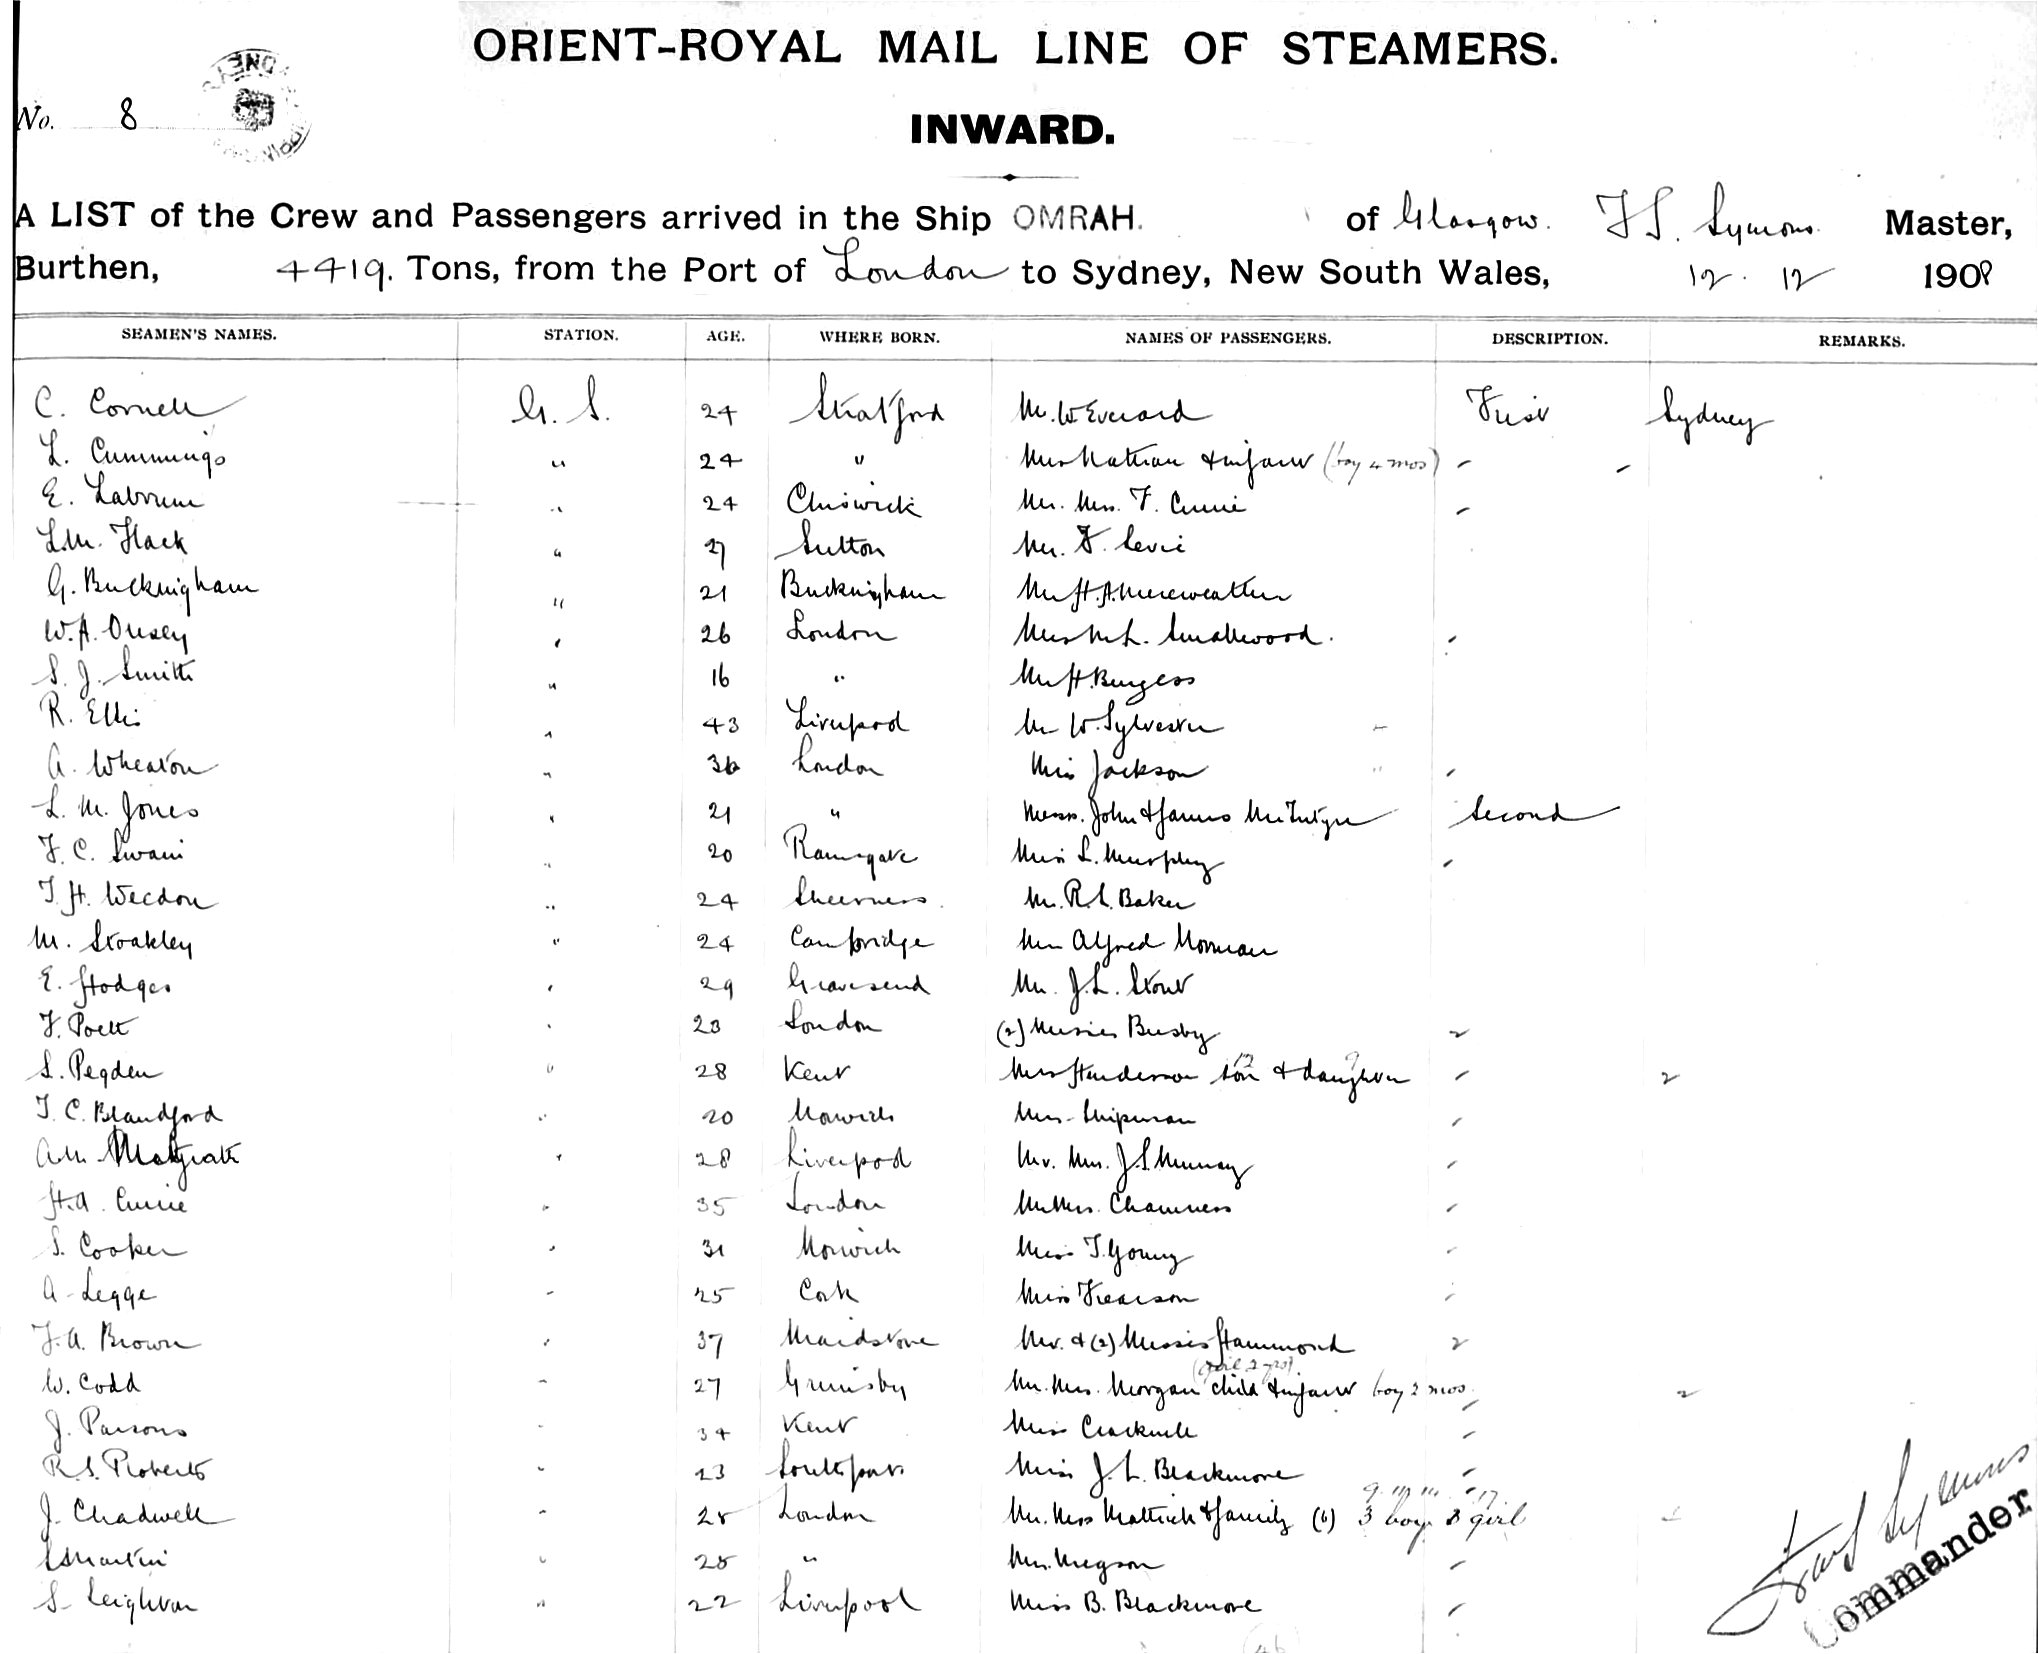 ORIENT-ROYAL MAIL LINE OF STEAMERS.
No. 8
INWARD.
A LIST of the Crew and Passengers arrived in the Ship OMRAH. of Glasgow. F S. Symons Master,
Burthen, 4419. Tons, from the Port of London to Sydney, New South Wales, 12. 12 1908
SEAMEN'S NAMES. STATION. AGE. WHERE BORN. NAMES OF PASSENGERS. DESCRIPTION. REMARKS.
C. Cornell G. S. 24 Stratford Mr. W Everard First Sydney
L. Cummings " 24 " Mrs Nathan & infant (boy 4 mos)
E. Labrum " 24 Chiswick Mr. Mrs. F. Currie
L.M. Flack " 27 Sutton Mr. F. Levie
G. Buckingham " 21 Buckingham Mr H.A. Mereweather
W.A. Ousey " 26 London Mrs M L. Smallwood.
S. J. Smith " 16 " Mr H. Burgess
R. Ellis " 43 Liverpool Mr W. Sylvester
A. Wheaton " 36 London Miss Jackson "
L. M. Jones " 21 " Messrs. John & James McIntyre Second
F. C. Swain " 20 Ramsgate Miss L. Murphy
T. H. Weedon " 24 Sheerness. Mr. R. L. Baker
M. Stoakley " 24 Cambridge Mr Alfred Norman
E. Hodges " 29 Gravesend Mr. J. L. Stout
F. Poett " 23 London (2) Misses Busby 2
S. Pegden " 28 Kent Mrs Henderson son & daughter 2
T. C. Blandford " 20 Norwich Mrs Shipman
A.M. " 28 Liverpool Mr. Mrs. J. S. Murray
H.A. Currie " 35 London Mr Mrs. Chamness
S. Cooker " 31 Norwich Miss T. Young
A Legge " 25 Cork Miss Frearson
F. A. Brown " 37 Maidstone Mr. & (2) Misses Hammond 2
W. Codd " 27 Grimsby Mr. Mrs. Morgan child (girl 2 yrs). & infant boy 2 mos. 2
J. Parsons " 34 Kent Miss Cracknell
R. S. Roberts " 23 Southport Miss J. L. Blackmore
J. Chadwell " 28 London Mr. Mrs Mattrick & family (6) 3 boy 3 girl
Martin " 28 " Mr. Megson
S. Leighton " 22 Liverpool Miss B. Blackmore
Symons
Commander